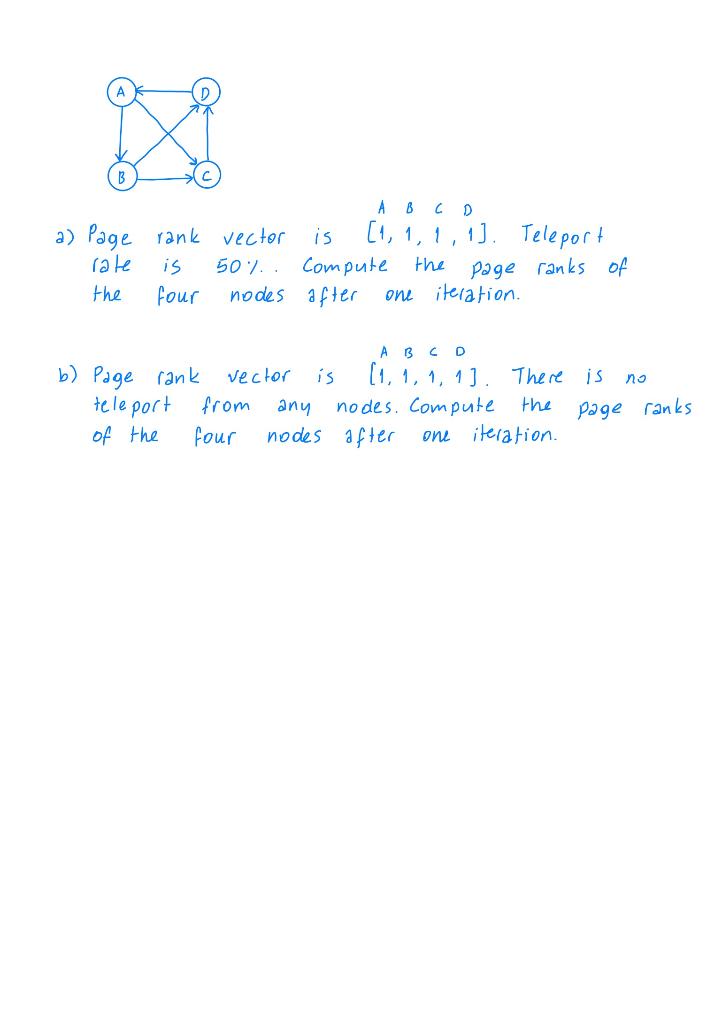 A D
B C
A B C D
a) Page rank vector is [1, 1, 1, 1]. Teleport
rate is 50%.. Compute the page ranks of
the four nodes after one iteration.
A B C D
b) Page rank vector is [1, 1, 1, 1]. There is no
teleport from any nodes. Compute the page ranks
of the four nodes after one iteration.